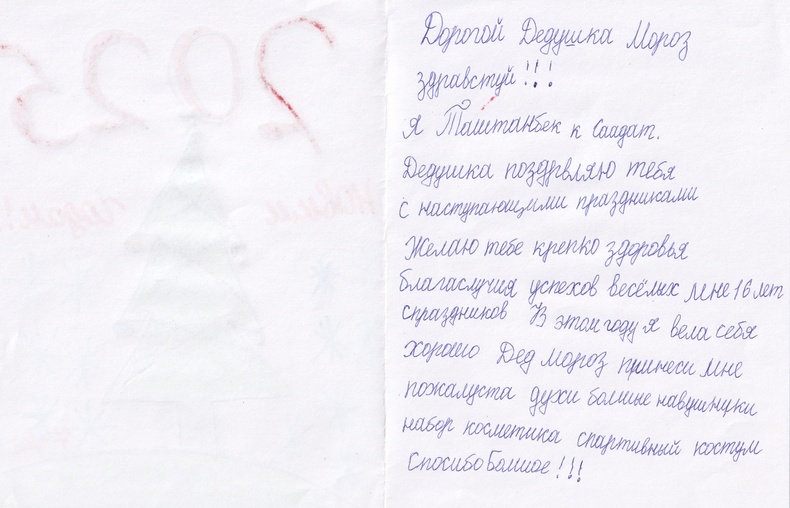 Дорогой Дедушка Мороз
здравстуй!!!
Я Таштанбек к Саадат.
Дедушка поздрвляю тебя
с наступающими праздниками
Желаю тебе крепко здоровья
благаслучия успехов весёлых мне 16 лет
спраздников В этом году я вела себя
хорошо Дед Мороз принеси мне
пожалуста духи болшие навушнуки
набор косметика спартивный костум
Спосибо Болшое!!!
2025